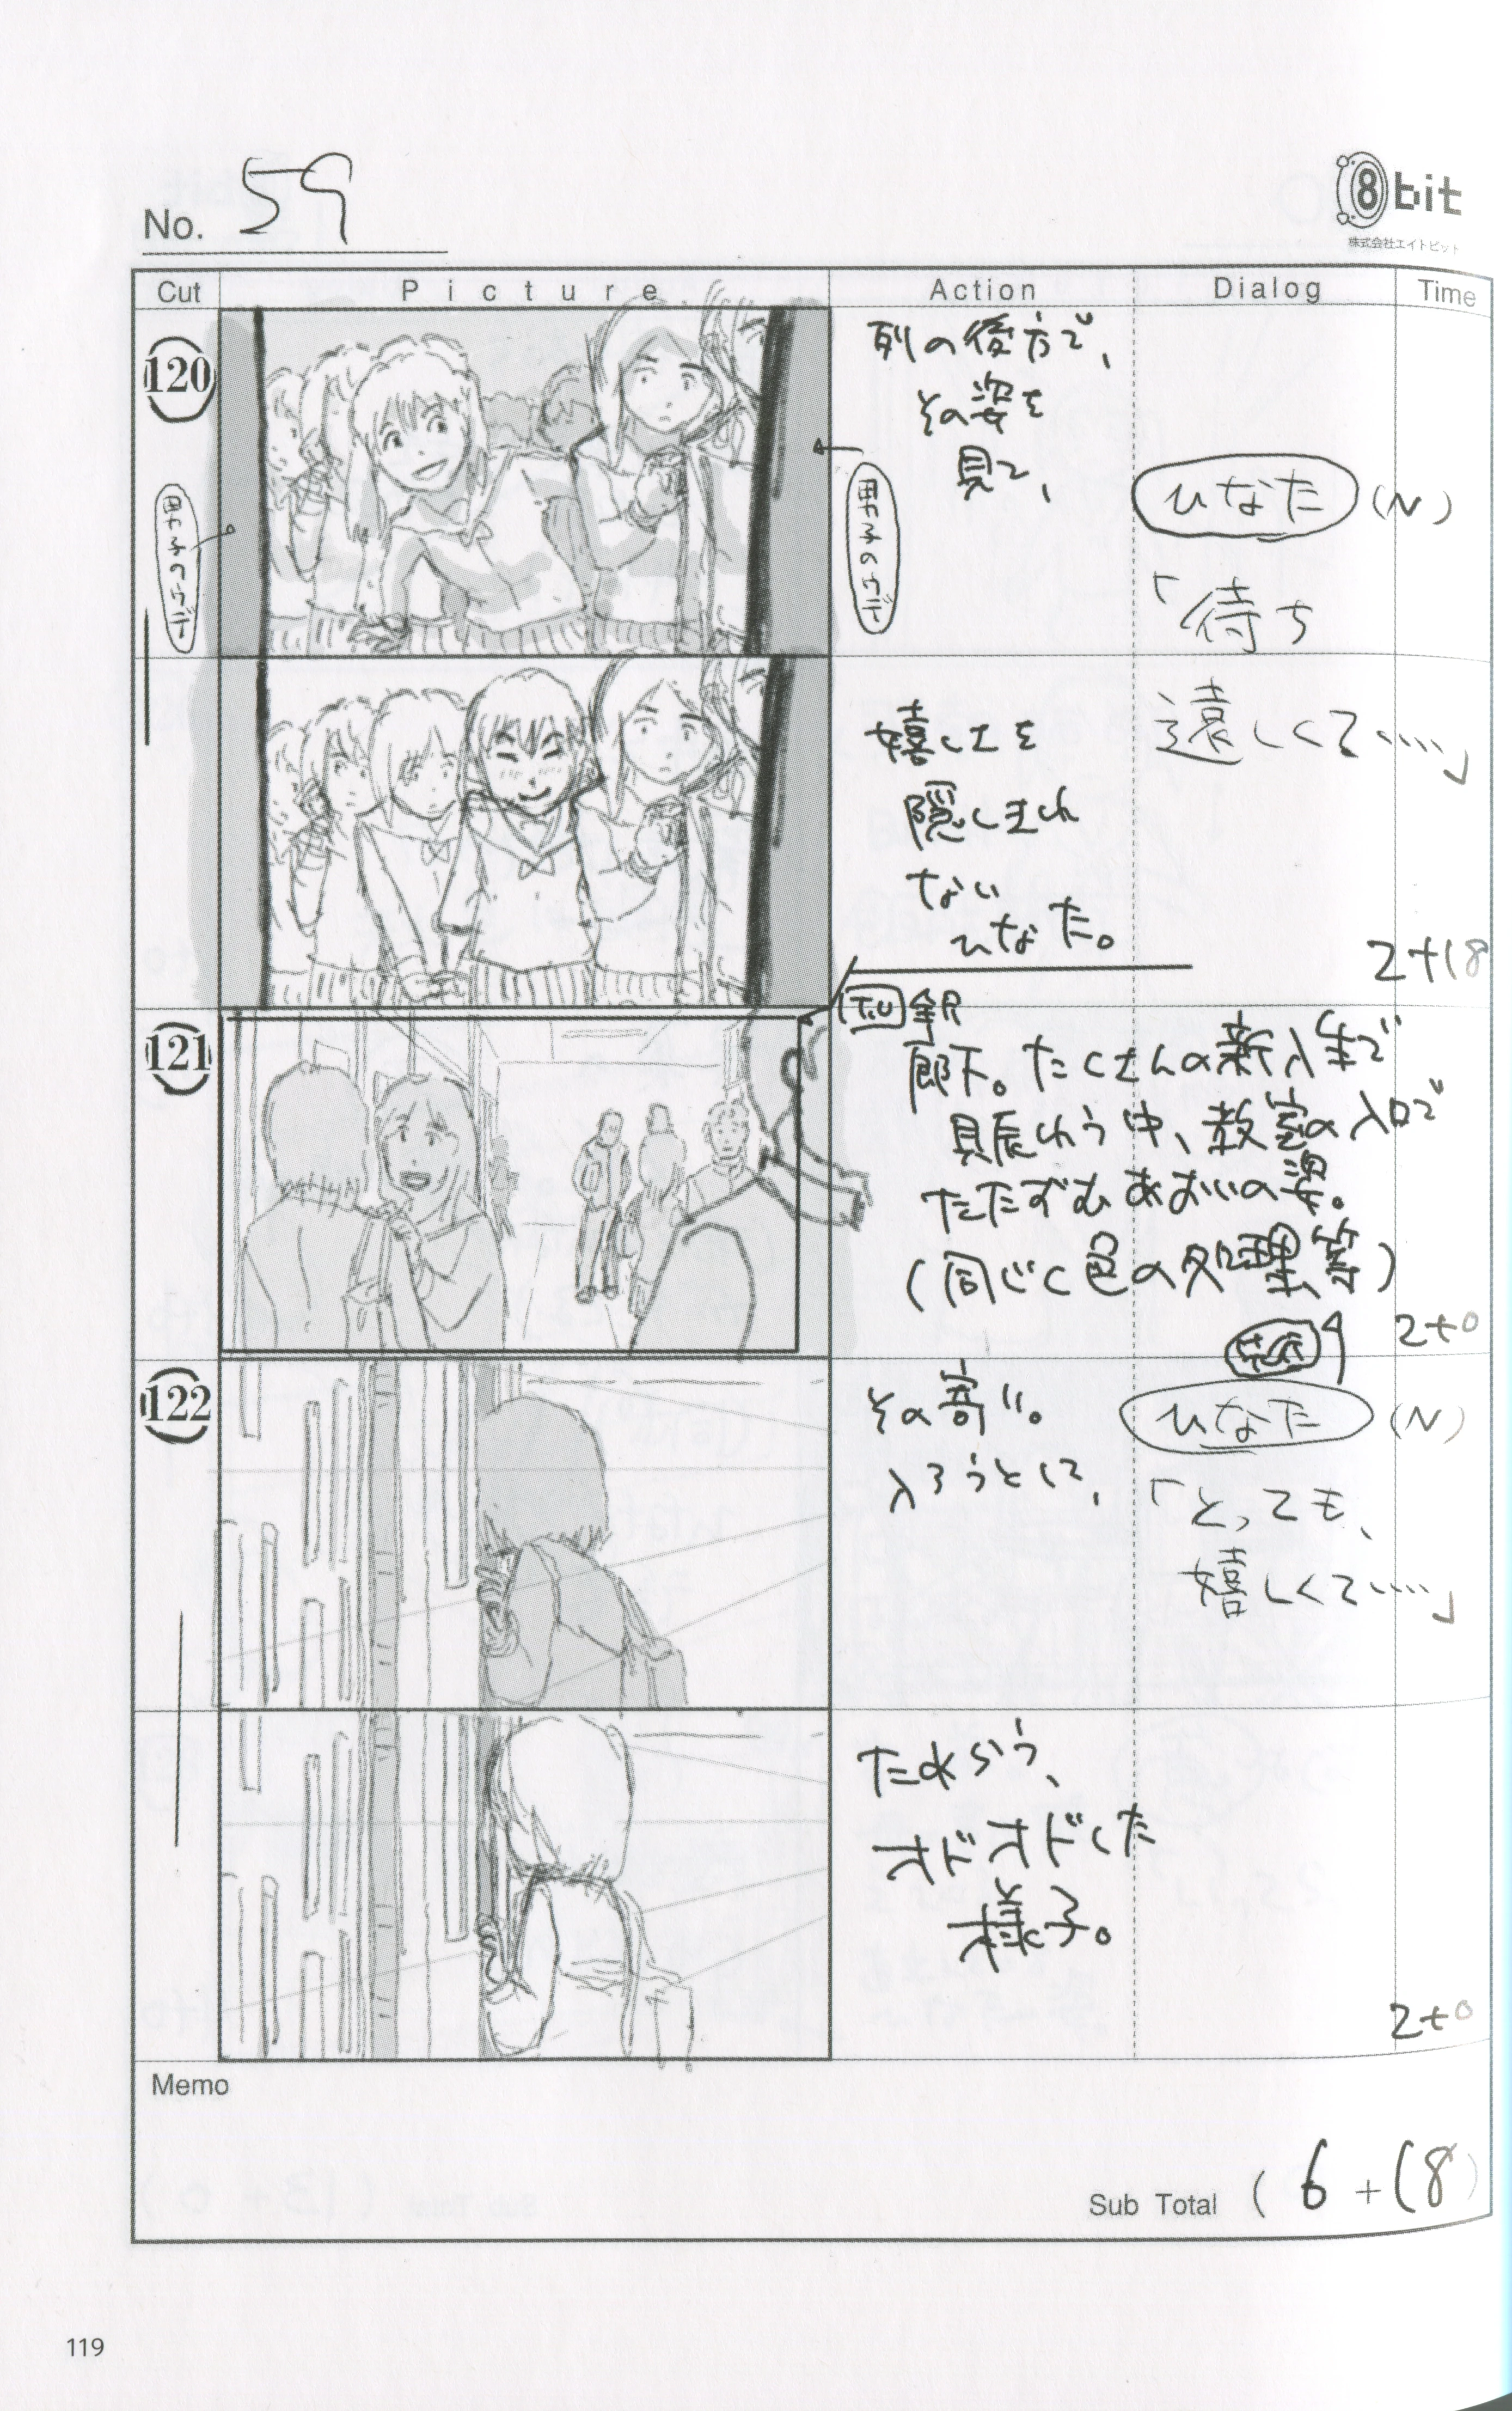 No. 59
8bit
株式会社エイトビット
Cut
Picture
Action
Dialog
Time
120
列の後方で、
その姿を
見て、
ひなた (N)
「待ち
遠しくて‥‥」
嬉しさを
隠しきれ
ない
ひなた。
2+18
121
T.U
廊下。たくさんの新入生で
賑わう中、教室の入口で
たたずむあおいの姿。
(同じく色の処理等)
2+0
122
その寄り。
入ろうとして、
ひなた (N)
「とっても、
嬉しくて‥‥」
ためらう、
オドオドした
様子。
2+0
Memo
Sub Total ( 6 + 18 )
119